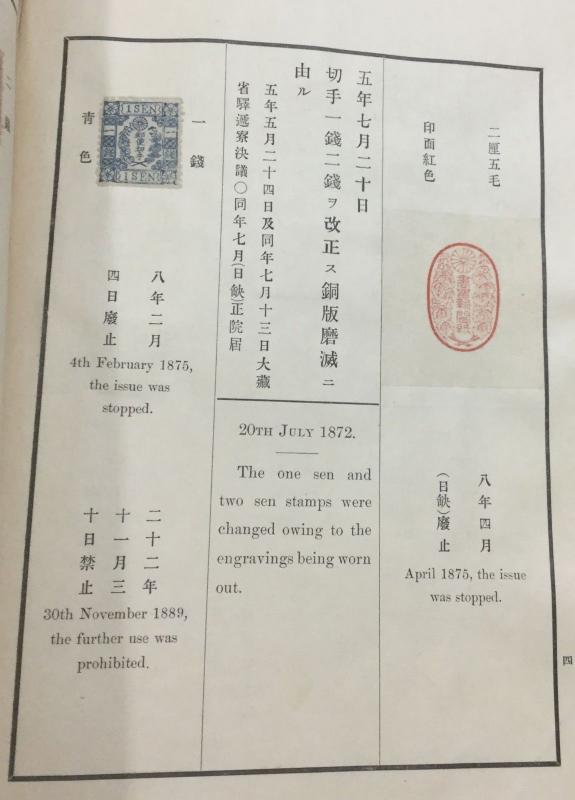 二厘五毛
印面紅色
八年四月
(日缺)廢止
April 1875, the issue
was stopped.
五年七月二十日
切手一錢二錢ヲ改正ス銅版磨滅ニ
由ル
五年五月二十四日及同年七月十三日大藏
省驛遞寮決議〇同年七月(日缺)正院届
20TH JULY 1872.
The one sen and
two sen stamps were
changed owing to the
engravings being worn
out.
一錢
1 SEN
郵便切手
1 SEN
青色
八年二月
四日廢止
4th February 1875,
the issue was
stopped.
二十二年
十一月三
十日禁止
30th November 1889,
the further use was
prohibited.
四